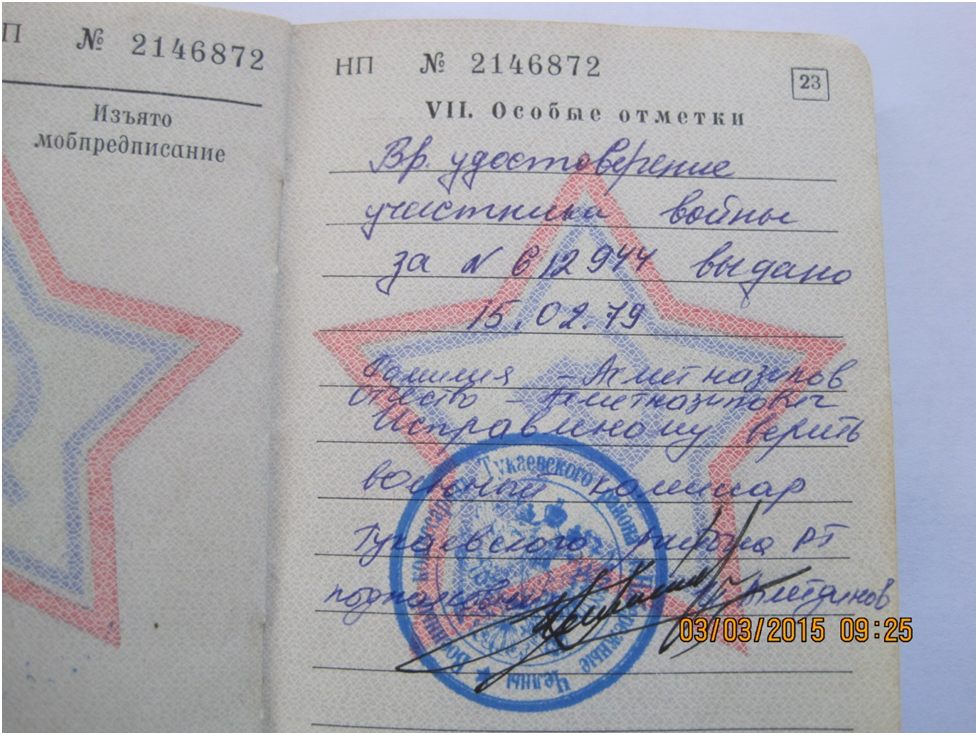 П № 2146872
Изъято
мобпредписание
НП № 2146872
23
VII. Особые отметки
Вр. удостоверение
участника войны
за N 612944 выдано
15.02.79
Фамилия - Ахметназипов
Отчество - Ахметназипович
Исправленому верить
военный комиссар
Тукаевского района РТ
подполковник
Военный комиссариат Тукаевского района Набережные Челны
03/03/2015 09:25